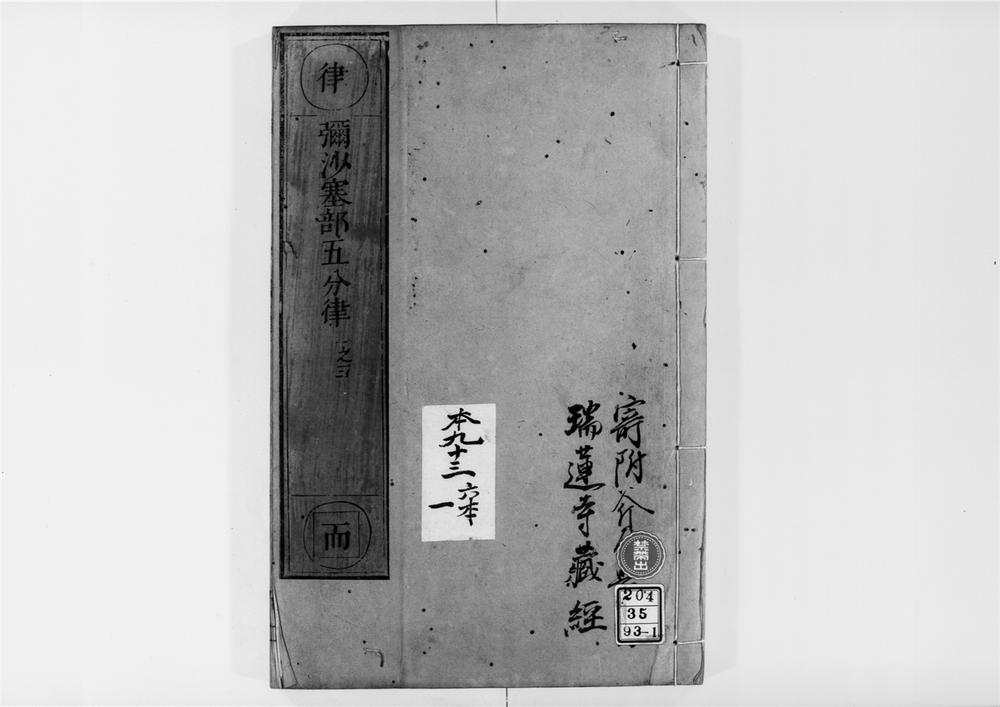 寄附
瑞蓮寺藏經
律
彌沙塞部五分律
之三
而
本九十三
六本
一
禁帶出
204
35
93-1